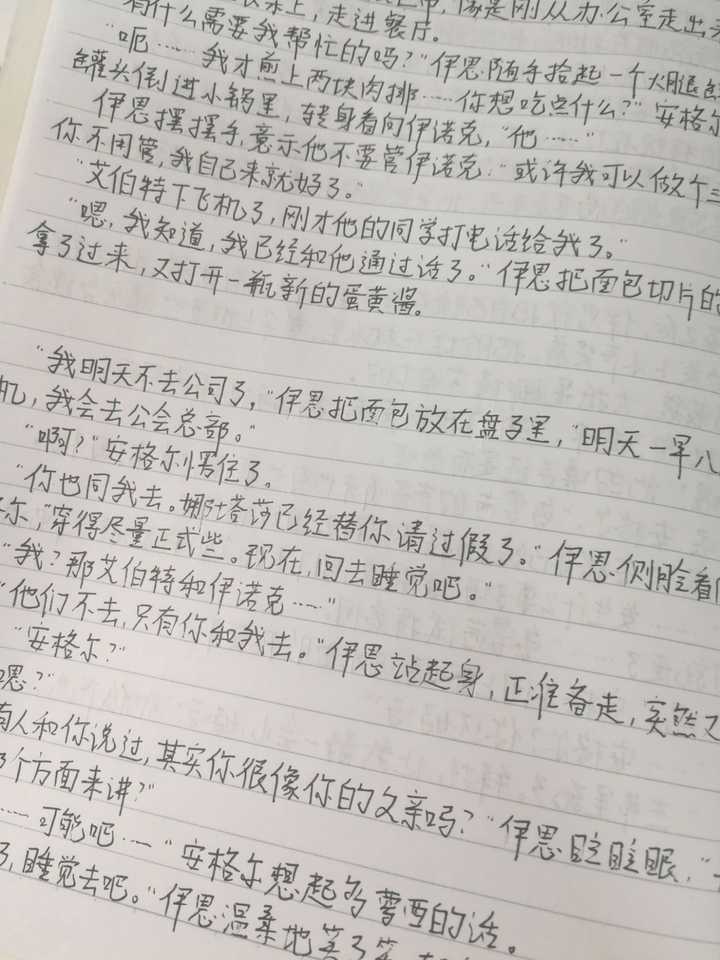 上，走进餐厅。像是刚从办公室走出
有什么需要我帮忙的吗？"伊恩随手拾起一个火腿
"呃……我才煎上两块肉排……你想吃点什么？"安格尔
罐头倒进小锅里，转身看向伊诺克，"他……"
伊恩摆摆手，意示他不要管伊诺克："或许我可以做个三
你不用管，我自己来就好了。"
"艾伯特下飞机了，刚才他的同学打电话给我了。"
"嗯，我知道，我已经和他通过话了。"伊恩把面包切片的
拿了过来，又打开一瓶新的蛋黄酱。
"我明天不去公司了，"伊恩把面包放在盘子里，"明天一早八
机，我会去公会总部。"
"啊？"安格尔愣住了。
"你也同我去。娜塔莎已经替你请过假了。"伊恩侧脸看
尔，"穿得尽量正式些。现在，回去睡觉吧。"
"我？那艾伯特和伊诺克……"
"他们不去，只有你和我去。"伊恩站起身，正准备走，突然又
"安格尔？"
嗯？"
有人和你说过，其实你很像你的父亲吗？"伊恩眨眨眼，"
个方面来讲？"
……可能吧……"安格尔想起多蕾西的话。
了，睡觉去吧。"伊恩温柔地笑了笑